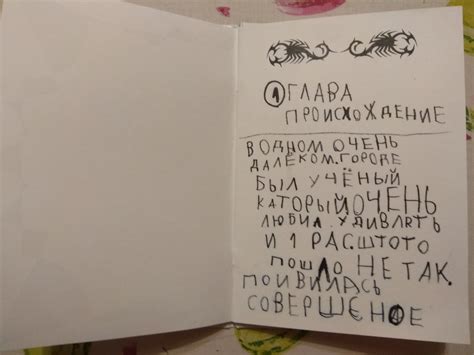 1 ГЛАВА
ПРОИСХОЖДЕНИЕ
В ОДНОМ ОЧЕНЬ
ДАЛЁКОМ. ГОРОДЕ
БЫЛ УЧЁНЫЙ
КАТОРЫЙ ОЧЕНЬ
ЛЮБИЛ УДИВЛЯТЬ
И 1 РАС. ШТОТО
ПОШЛО НЕ ТАК.
ПОИВИЛАСЬ
СОВЕРШЕНОЕ